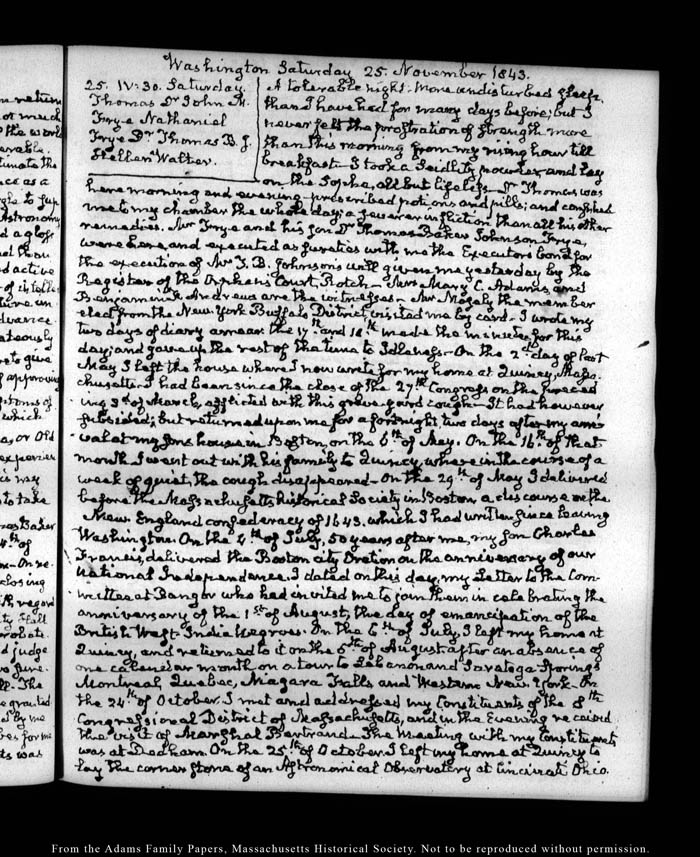 n return
or much
the world
erable.
timate the
ce as a
Astronomy
d a gloss
d active
ture un
dvance
ateously
to give
approving
which
as, or Old
experien
to take
Baker
4th of
closing
th regard
probate.
d judge
The
granted
by me
es for me
ts was
Washington Saturday 25. November 1843.
25. IV:30. Saturday.
Thomas Dr John M.
Frye Nathaniel
Frye Dr Thomas B. J.
Hellen Walter.
A tolerable night. More undisturbed sleep,
than I have had for many days before; but I
never felt the prostration of strength more
than this morning from my rising hour till
breakfast. I took a Seidlitz powder and lay
on the Sopha, all but lifeless. Dr Thomas was
here morning and evening—prescribed potions and pills; and confined
me to my chamber the whole day; a severer infliction than all his other
remedies. Mr Frye and his son Dr Thomas Baker Johnson Frye,
were here, and executed as sureties with me the Executors bond for
the execution of Mr T. B. Johnson's will given me yesterday by the
Register of the Orphans Court, Roach—Mrs Mary C. Adams and
Benjamin K. Andrews are the witnesses—Mr Mosely the member
elect from the New York Buffalo District, visited me by card—I wrote my
two days of diary arrear the 17th and 18th made the minutes for this
day; and gave up the rest of the time to Idleness—On the 2d day of last
May I left the house where I now write for my home at Quincy, Massa-
chusetts. I had been since the close of the 27th Congress on the preced
ing 3d of March, afflicted with this grave-yard cough—It had however
subsided; but returned upon me for a fortnight two days after my arri-
val at my Sons house in Boston, on the 6th of May. On the 16th of that
month I went out with his family to Quincy, where in the course of a
week of quiet, the cough disappeared—On the 29th of May I delivered
before the Massachusetts historical Society in Boston a discourse on the
New England confederacy of 1643. which I had written since leaving
Washington. On the 4th of July, 50 years after me, my son Charles
Francis, delivered the Boston city Oration on the anniversary of our
national Independence. I dated on this day, my Letter to the Com-
mittee at Bangor who had invited me to join them in celebrating the
anniversary of the 1st of August, the day of emancipation of the
British West-India Negroes. On the 6th of July, I left my home at
Quincy, and returned to it on the 5th of August after an absence of
one calendar month on a tour to Lebanon and Saratoga Springs
Montreal, Quebec, Niagara Falls and Western New York—On
the 24th of October I met and addressed my Constituents of the 8th
Congressional District of Massachusetts, and in the Evening received
the visit of Marshal Bertrand—The meeting with my Constituents
was at Dedham. On the 25th of October I left my home at Quincy to
lay the corner stone of an Astronomical Observatory at Cincinnati Ohio.
From the Adams Family Papers, Massachusetts Historical Society. Not to be reproduced without permission.